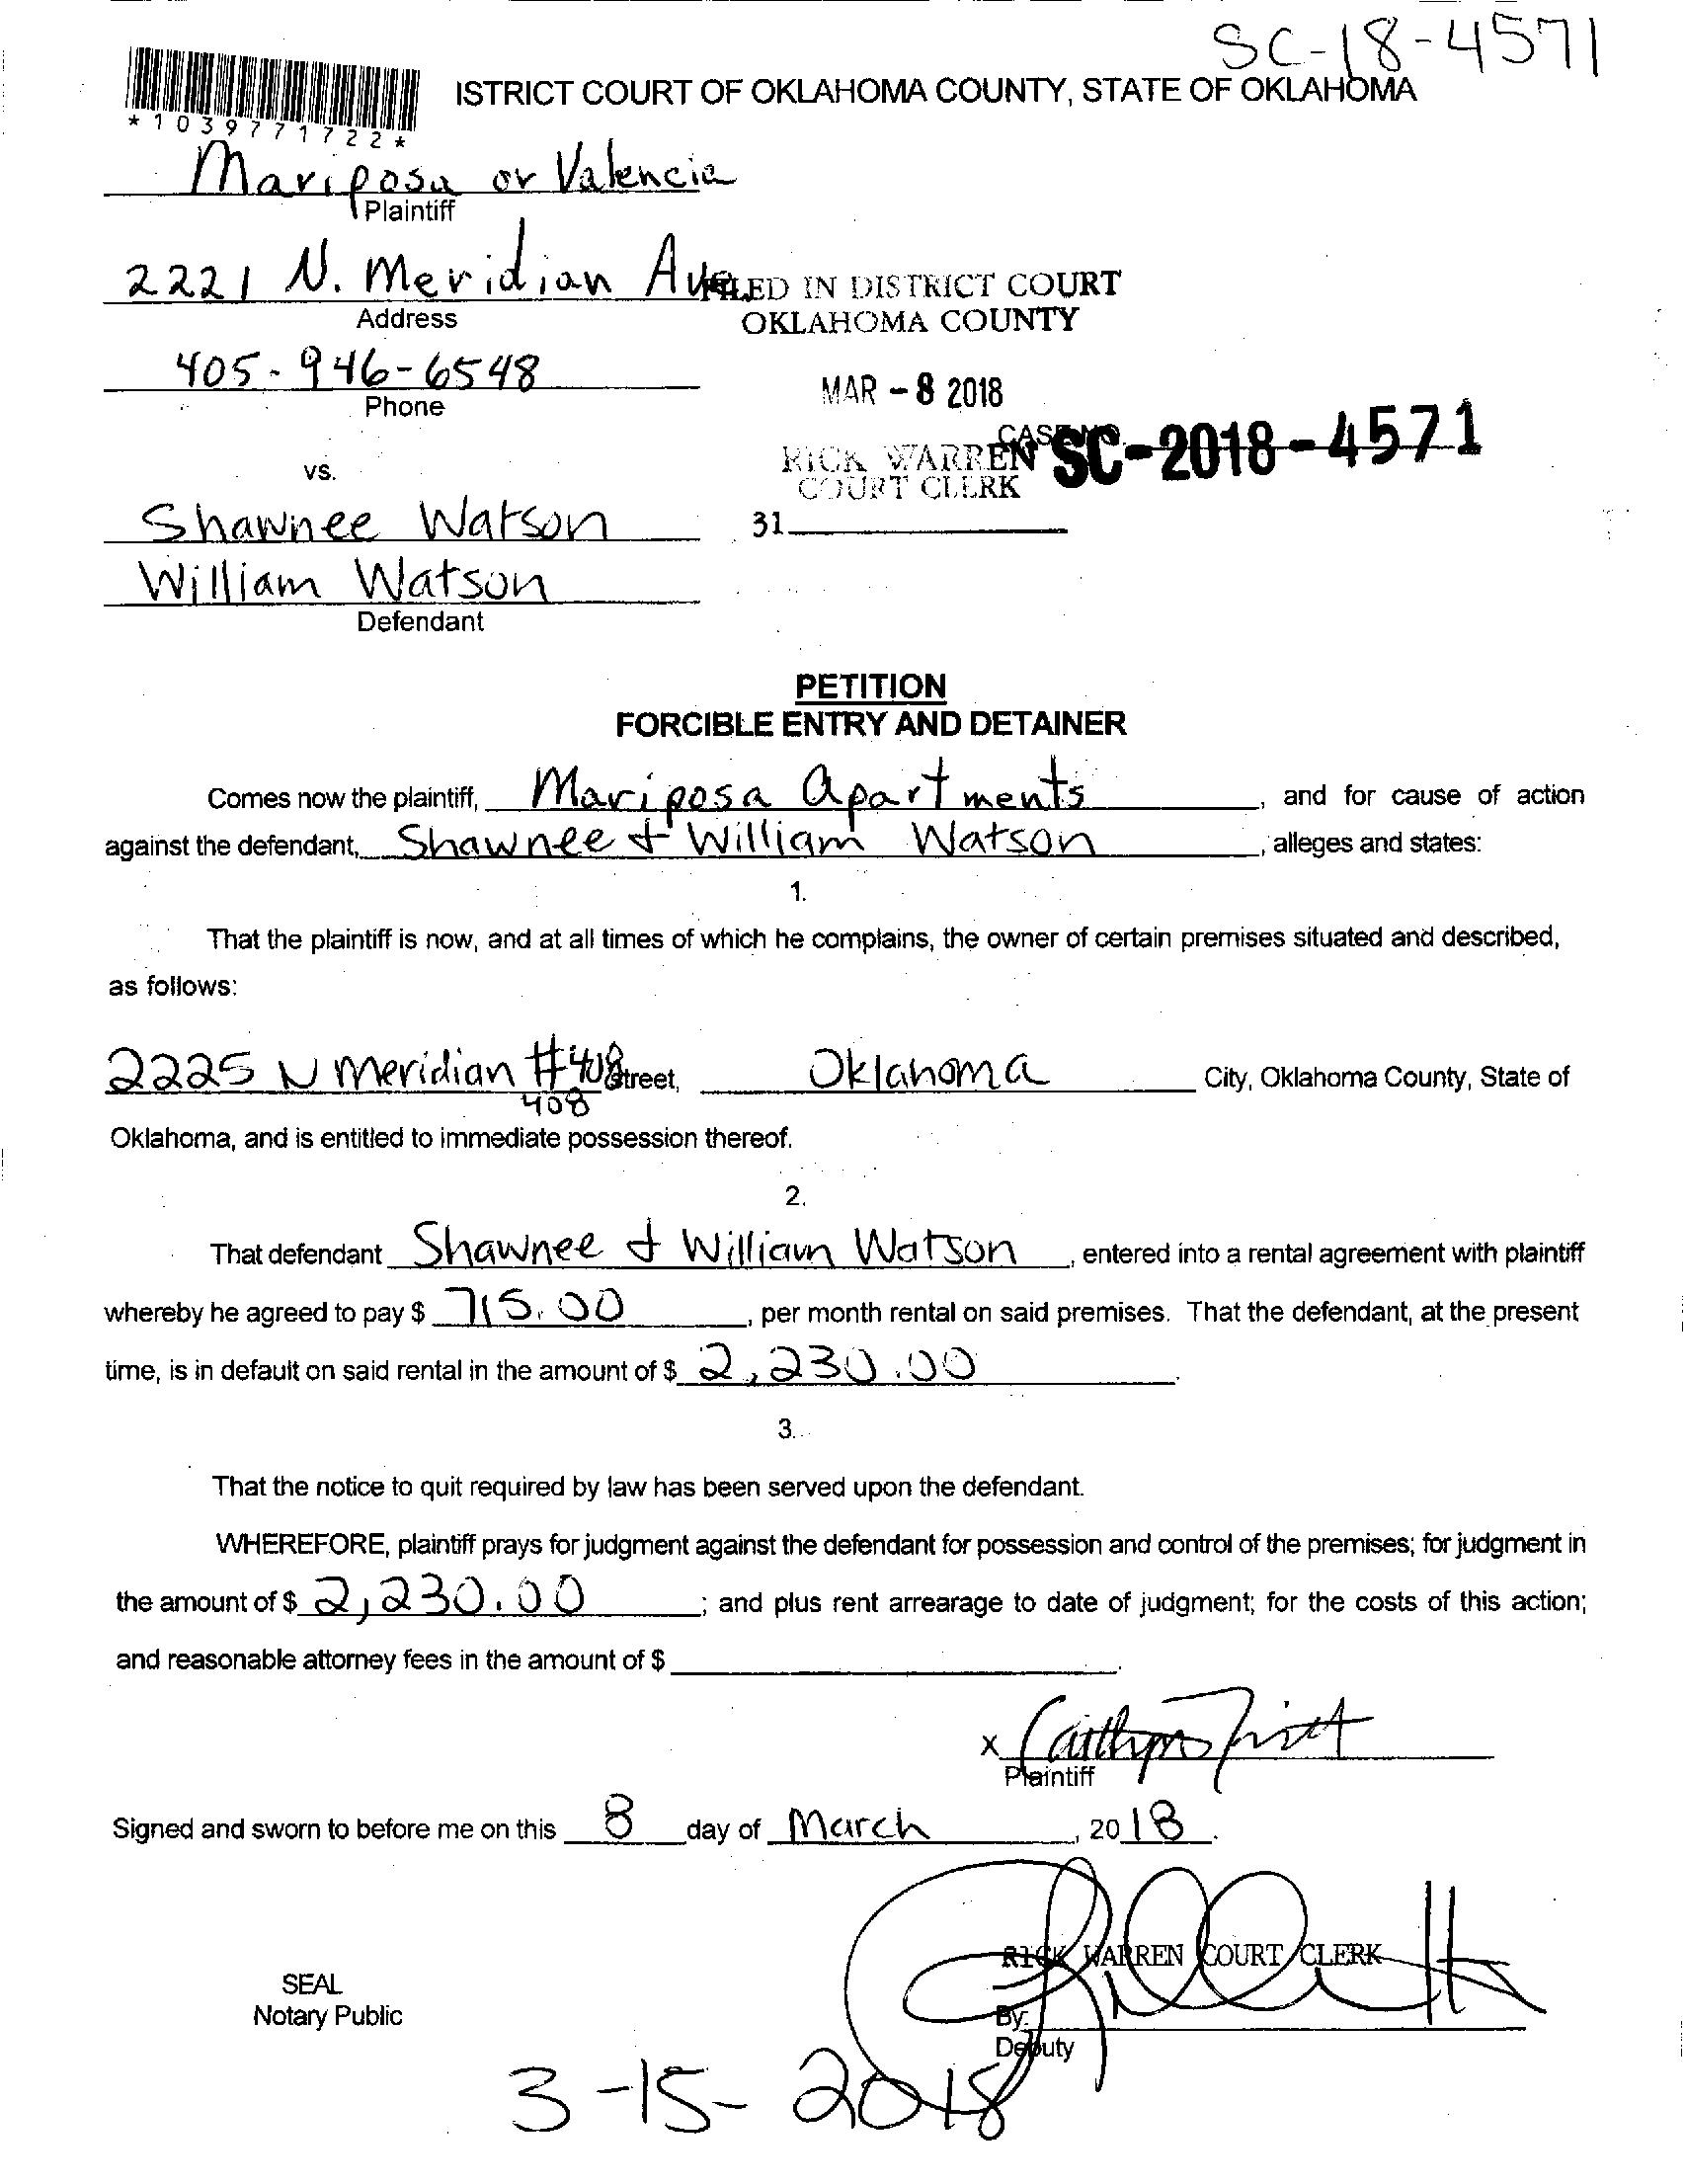 SC-18-4571
ISTRICT COURT OF OKLAHOMA COUNTY, STATE OF OKLAHOMA
*1039771722*
Mariposa or Valencia
Plaintiff
2221 N. Meridian Ave
FILED IN DISTRICT COURT
Address
OKLAHOMA COUNTY
405-946-6548
Phone
MAR - 8 2018
CASE NO. SC-2018-4571
RICK WARREN
COURT CLERK
vs.
Shawnee Watson
31
William Watson
Defendant
PETITION
FORCIBLE ENTRY AND DETAINER
Comes now the plaintiff, Mariposa Apartments, and for cause of action
against the defendant, Shawnee & William Watson, alleges and states:
1.
That the plaintiff is now, and at all times of which he complains, the owner of certain premises situated and described,
as follows:
2225 N Meridian #408 Street, Oklahoma City, Oklahoma County, State of
408
Oklahoma, and is entitled to immediate possession thereof.
2.
That defendant Shawnee & William Watson, entered into a rental agreement with plaintiff
whereby he agreed to pay $ 715.00, per month rental on said premises. That the defendant, at the present
time, is in default on said rental in the amount of $ 2,230.00.
3.
That the notice to quit required by law has been served upon the defendant.
WHEREFORE, plaintiff prays for judgment against the defendant for possession and control of the premises; for judgment in
the amount of $ 2,230.00; and plus rent arrearage to date of judgment; for the costs of this action;
and reasonable attorney fees in the amount of $
x
Plaintiff
Signed and sworn to before me on this 8 day of March, 2018.
RICK WARREN COURT CLERK
SEAL
Notary Public
By:
Deputy
3-15-2018